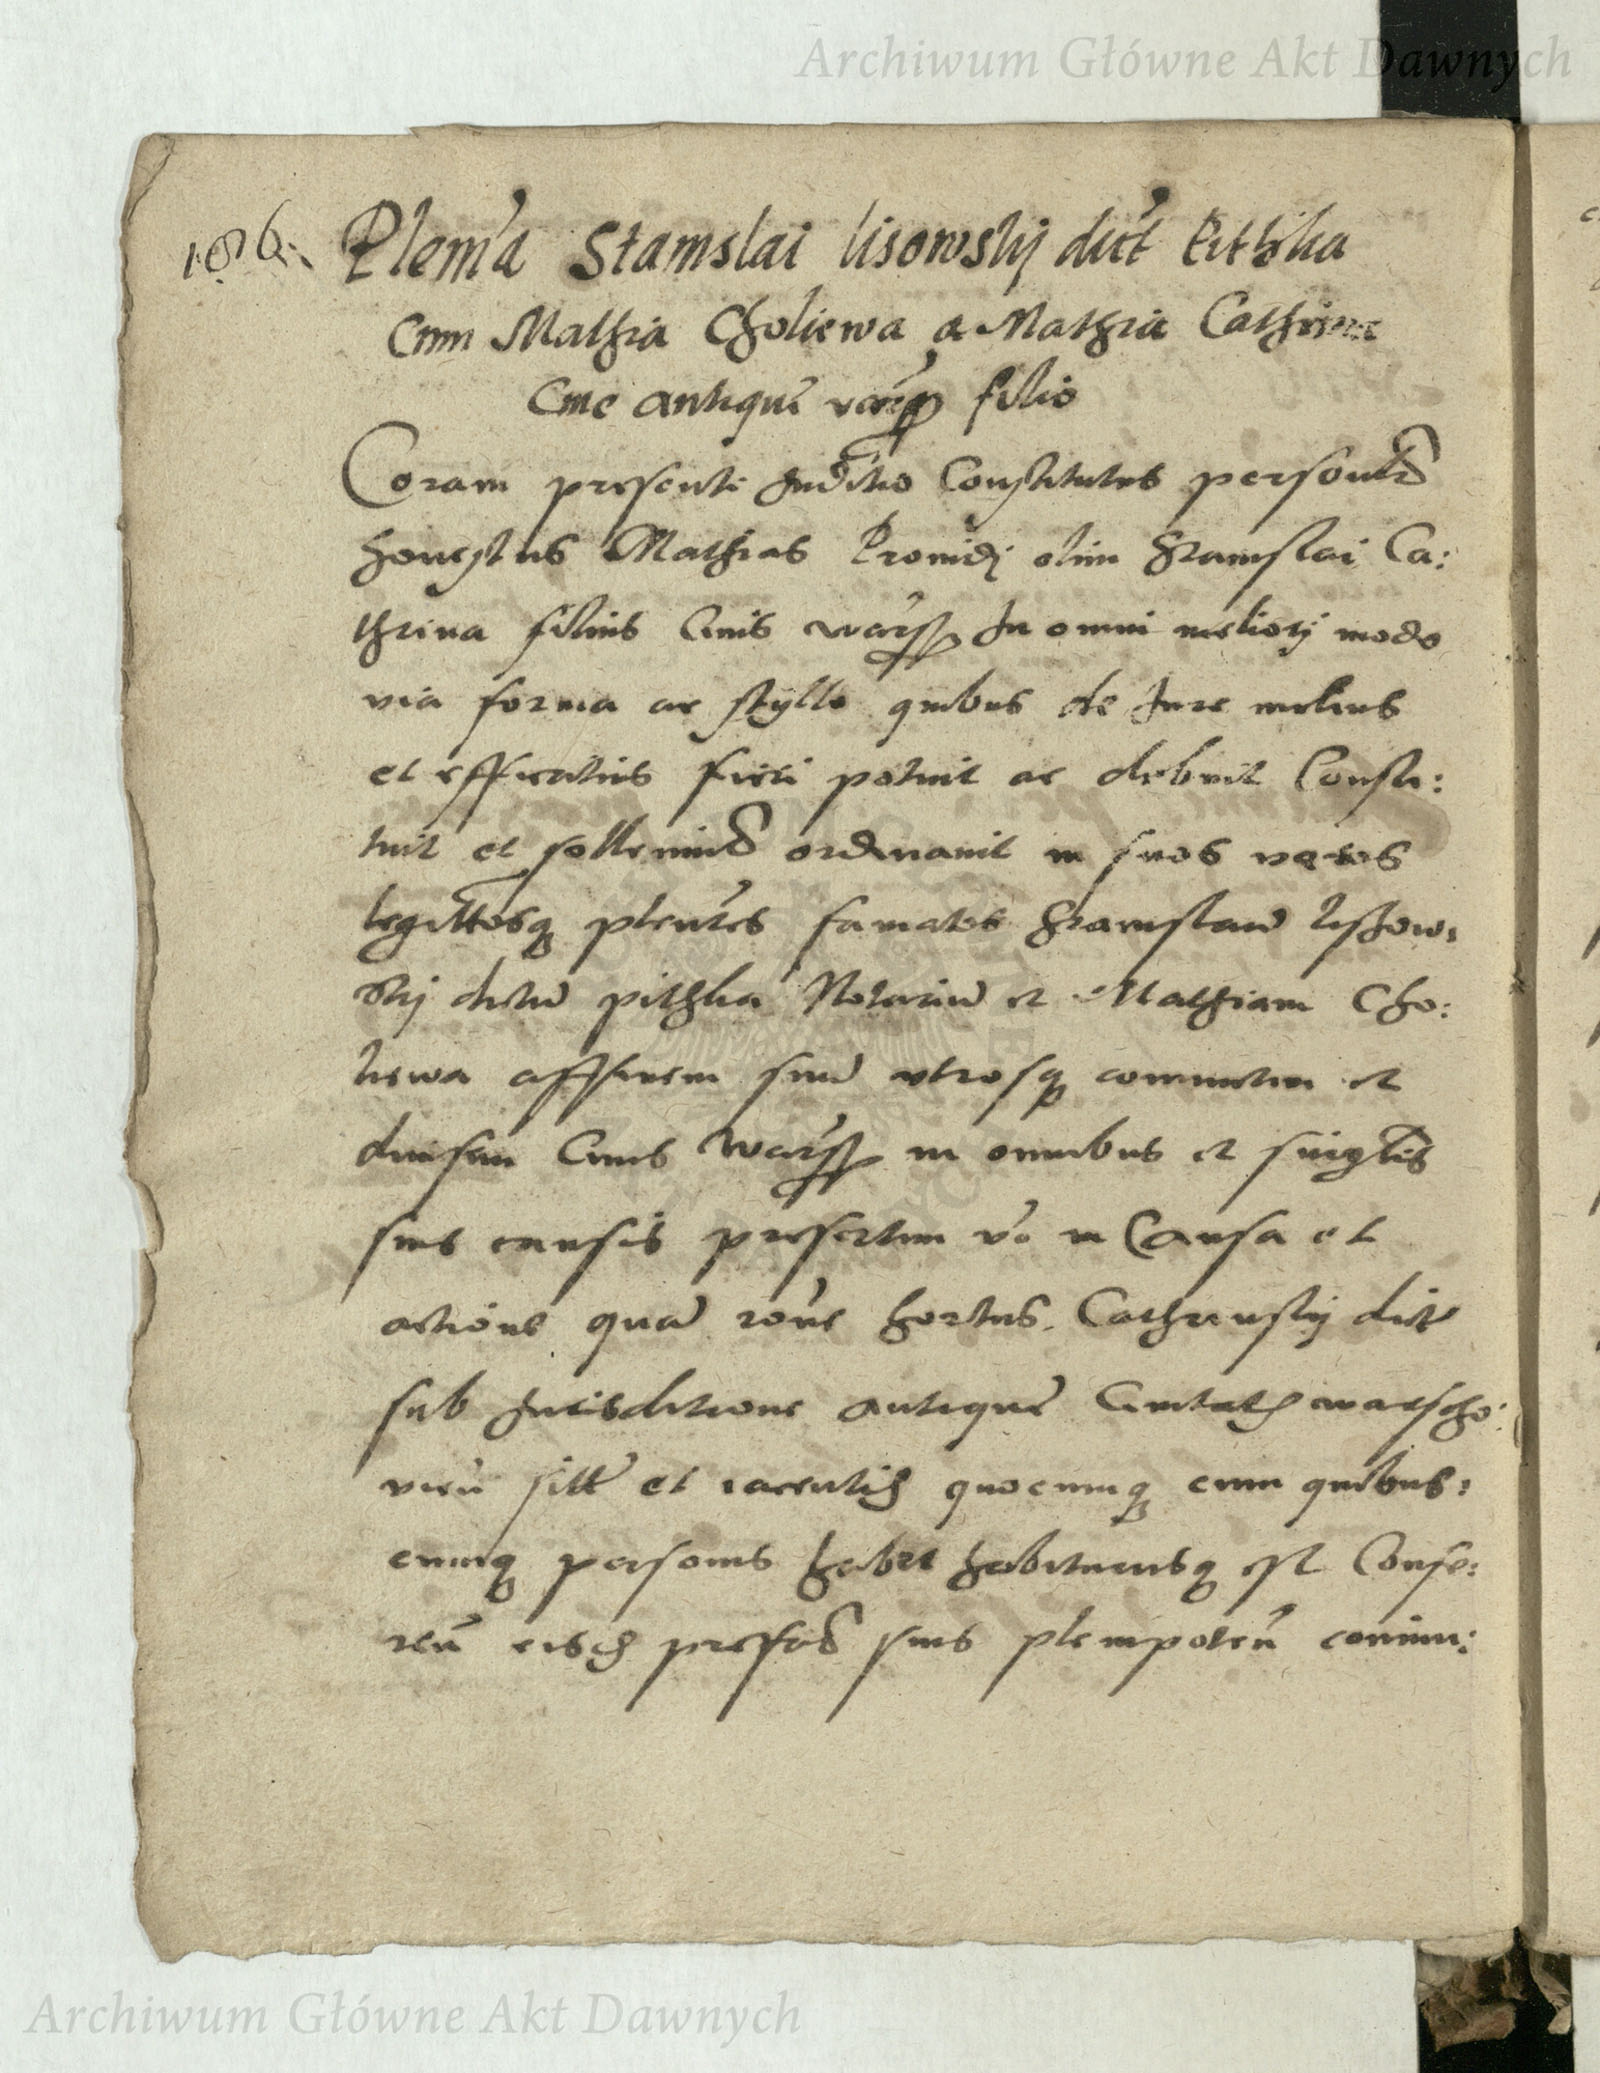 Archiwum Główne Akt Dawnych
186.
Plem'a Stanislai lisowskij dict Pithka
Cum Mathia Choliewa a Mathia Cathrina
Cive antique vars filio
Coram presenti Juditio Constitutus personal
honestus Mathias Providi olim Stanislai Ca:
thrina filius Civis wars In omni meliorj modo
via forma ac styllo quibus de Jure melius
et efficatius fieri potuit ac debuit Consti:
tuit et sollemnit ordinavit in suos veros
legittosq plentes famatos Stanislaum lissow:
skij dictum pithka Notarium et Mathiam Cho:
liewa affinem suum utrosq coniunctim et
divisim Cives wars in omnibus et singlis
suis causis presertim vo in Causa et
actione quam rone hortus Cathrinskij dict
sub Jurisditione antique Civitatis warscho:
vien sitt et iacentis quocunq cum quibus:
cunq personis habet habiturusq est Confe:
ren eisd prefas suis plenipoten coniun:
Archiwum Główne Akt Dawnych